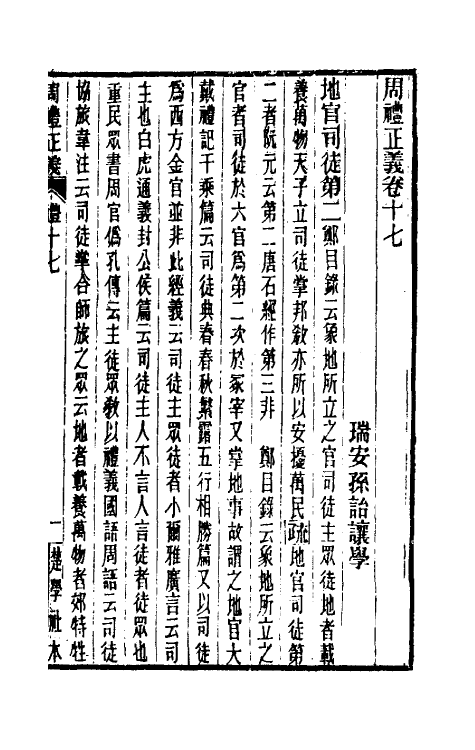 周禮正義卷十七
瑞安孫詒讓學
地官司徒第二鄭目錄云象地所立之官司徒主眾徒地者載
養萬物天子立司徒掌邦敎亦所以安擾萬民疏地官司徒第
二者阮元云第二唐石經作第三非　鄭目錄云象地所立之
官者司徒於六官爲第二次於冢宰又掌地事故謂之地官大
戴禮記千乘篇云司徒典春春秋繁露五行相勝篇又以司徒
爲西方金官並非此經義云司徒主眾徒者小爾雅廣言云司
主也白虎通義封公侯篇云司徒主人不言人言徒者徒眾也
重民眾書周官僞孔傳云主徒眾敎以禮義國語周語云司徒
協旅韋注云司徒掌合師旅之眾云地者載養萬物者郊特牲
周禮正義　禮十七　一　楚學社本